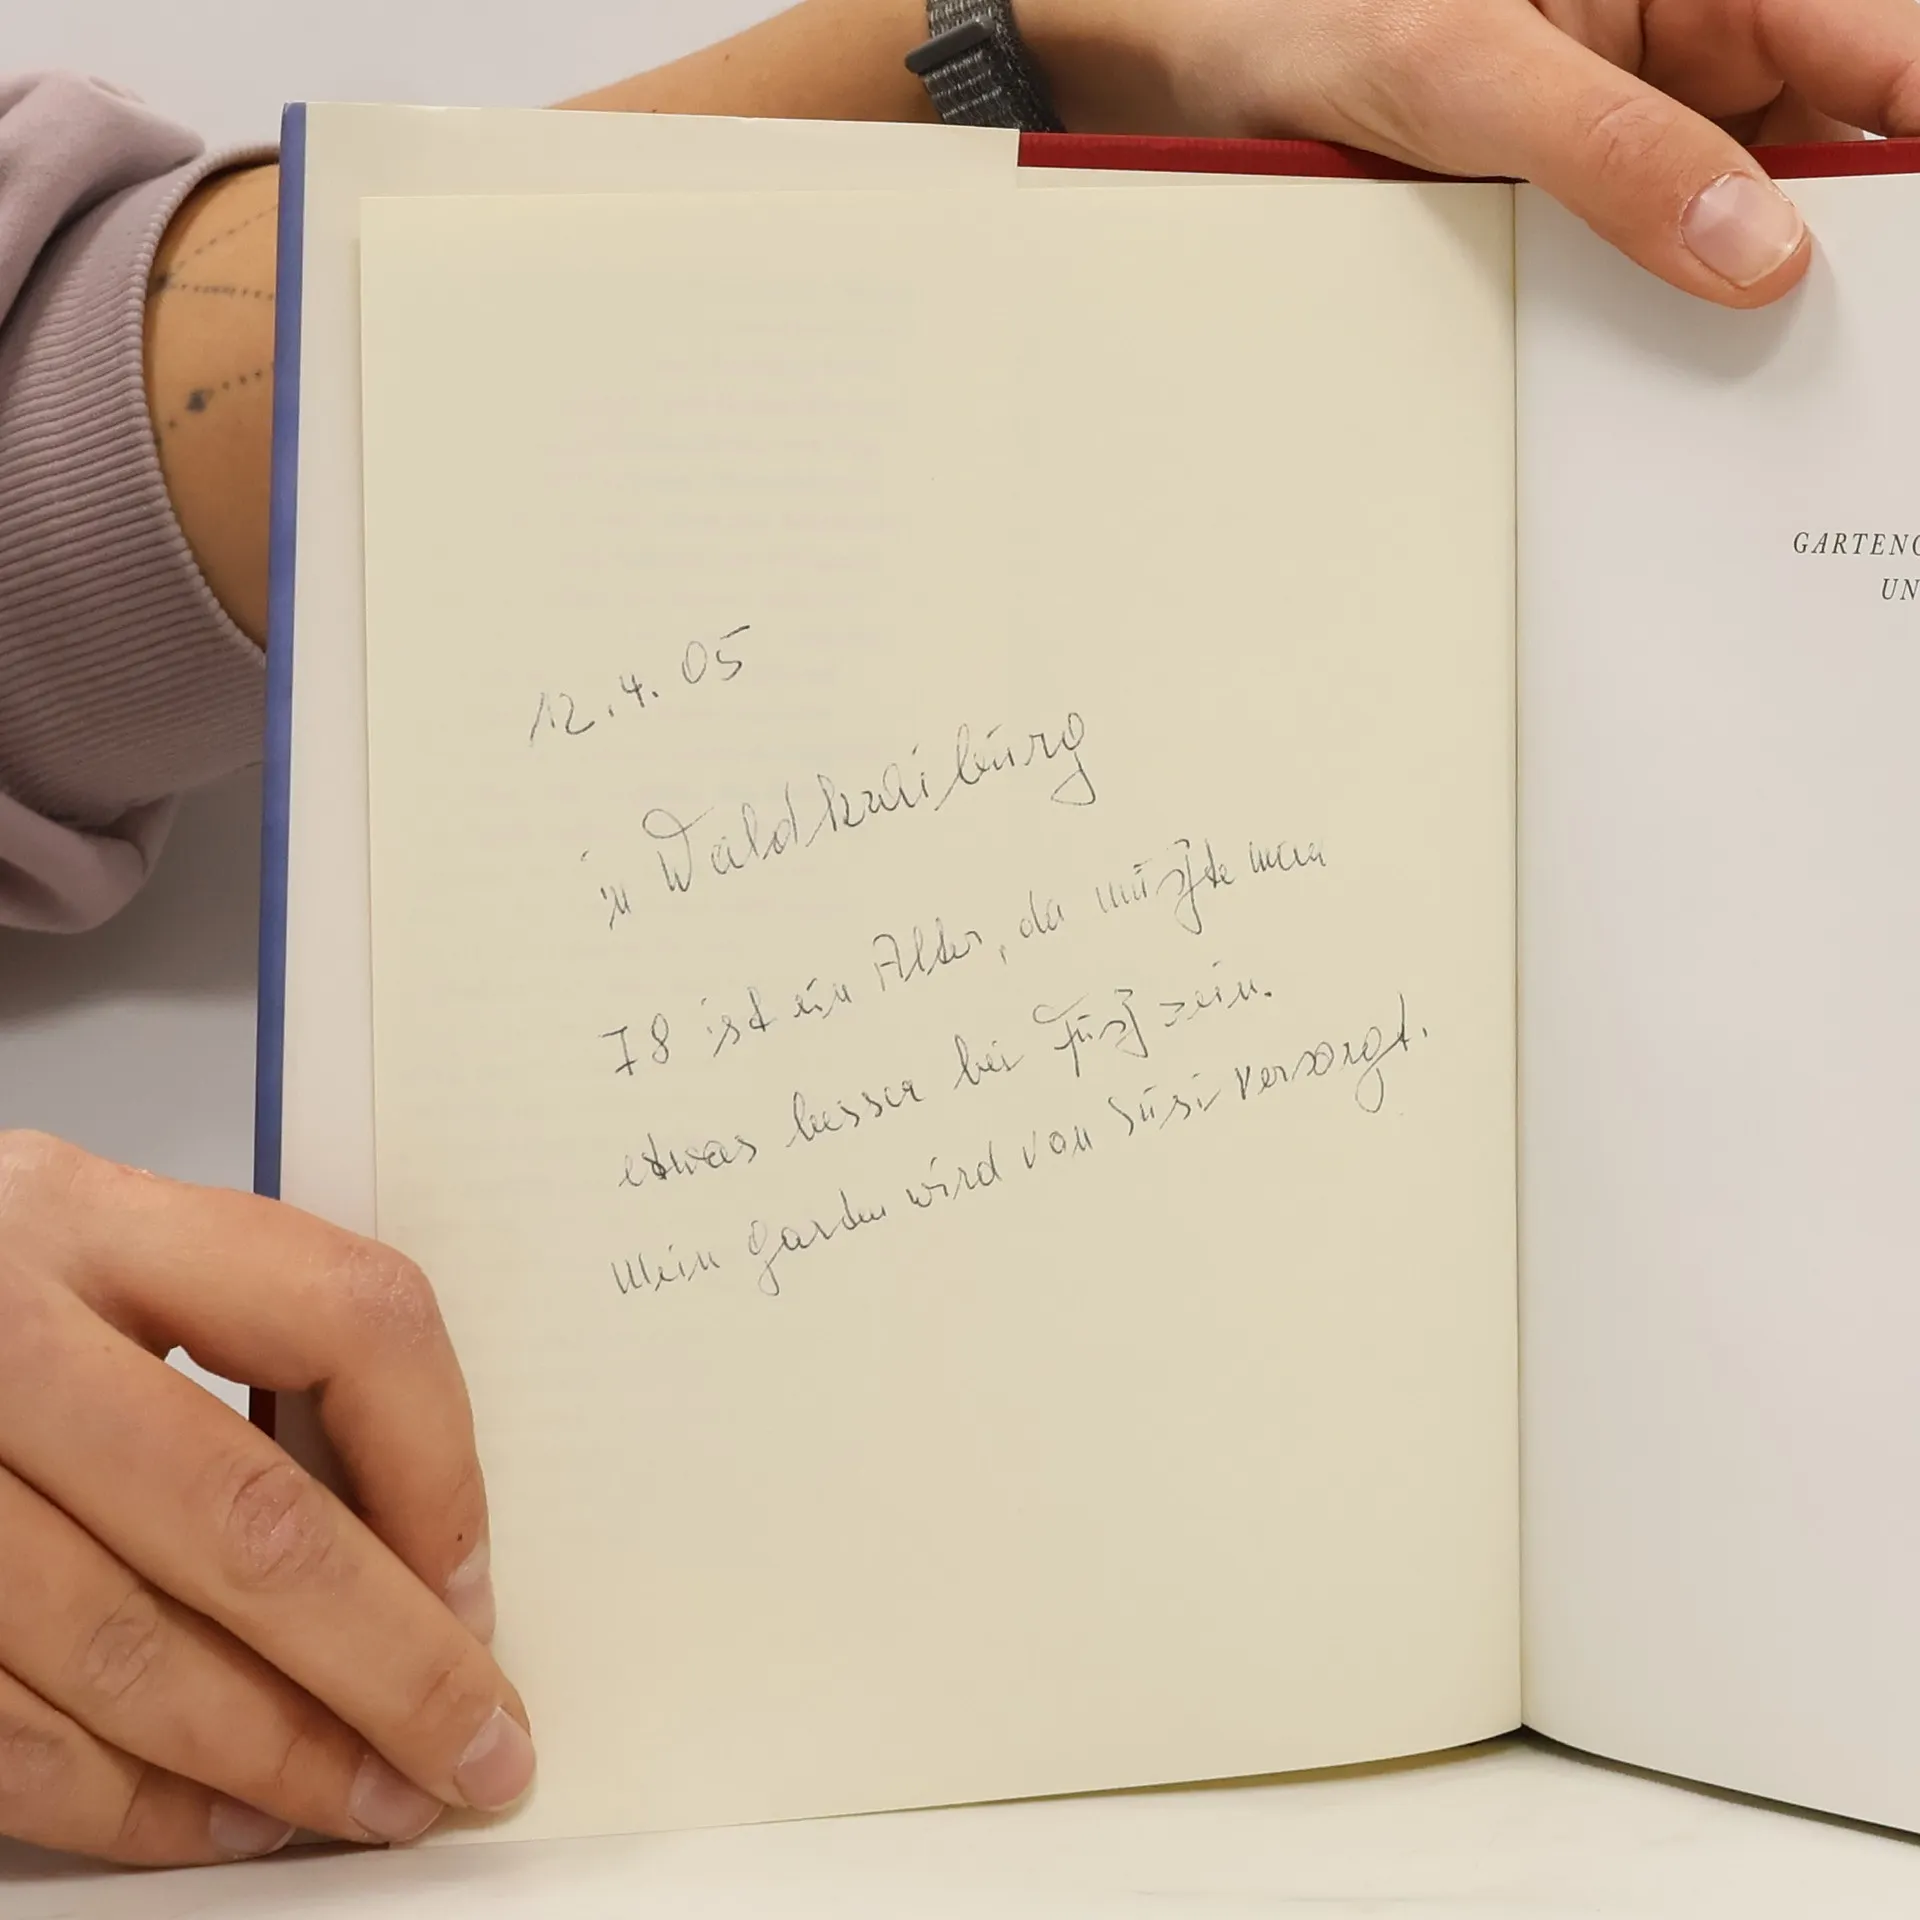 12.4.05
in Waldkraiburg
78 ist ein Alter, da müßte man
etwas besser bei Fuß sein.
Mein Garten wird von Susi versorgt.
GARTEN
UN